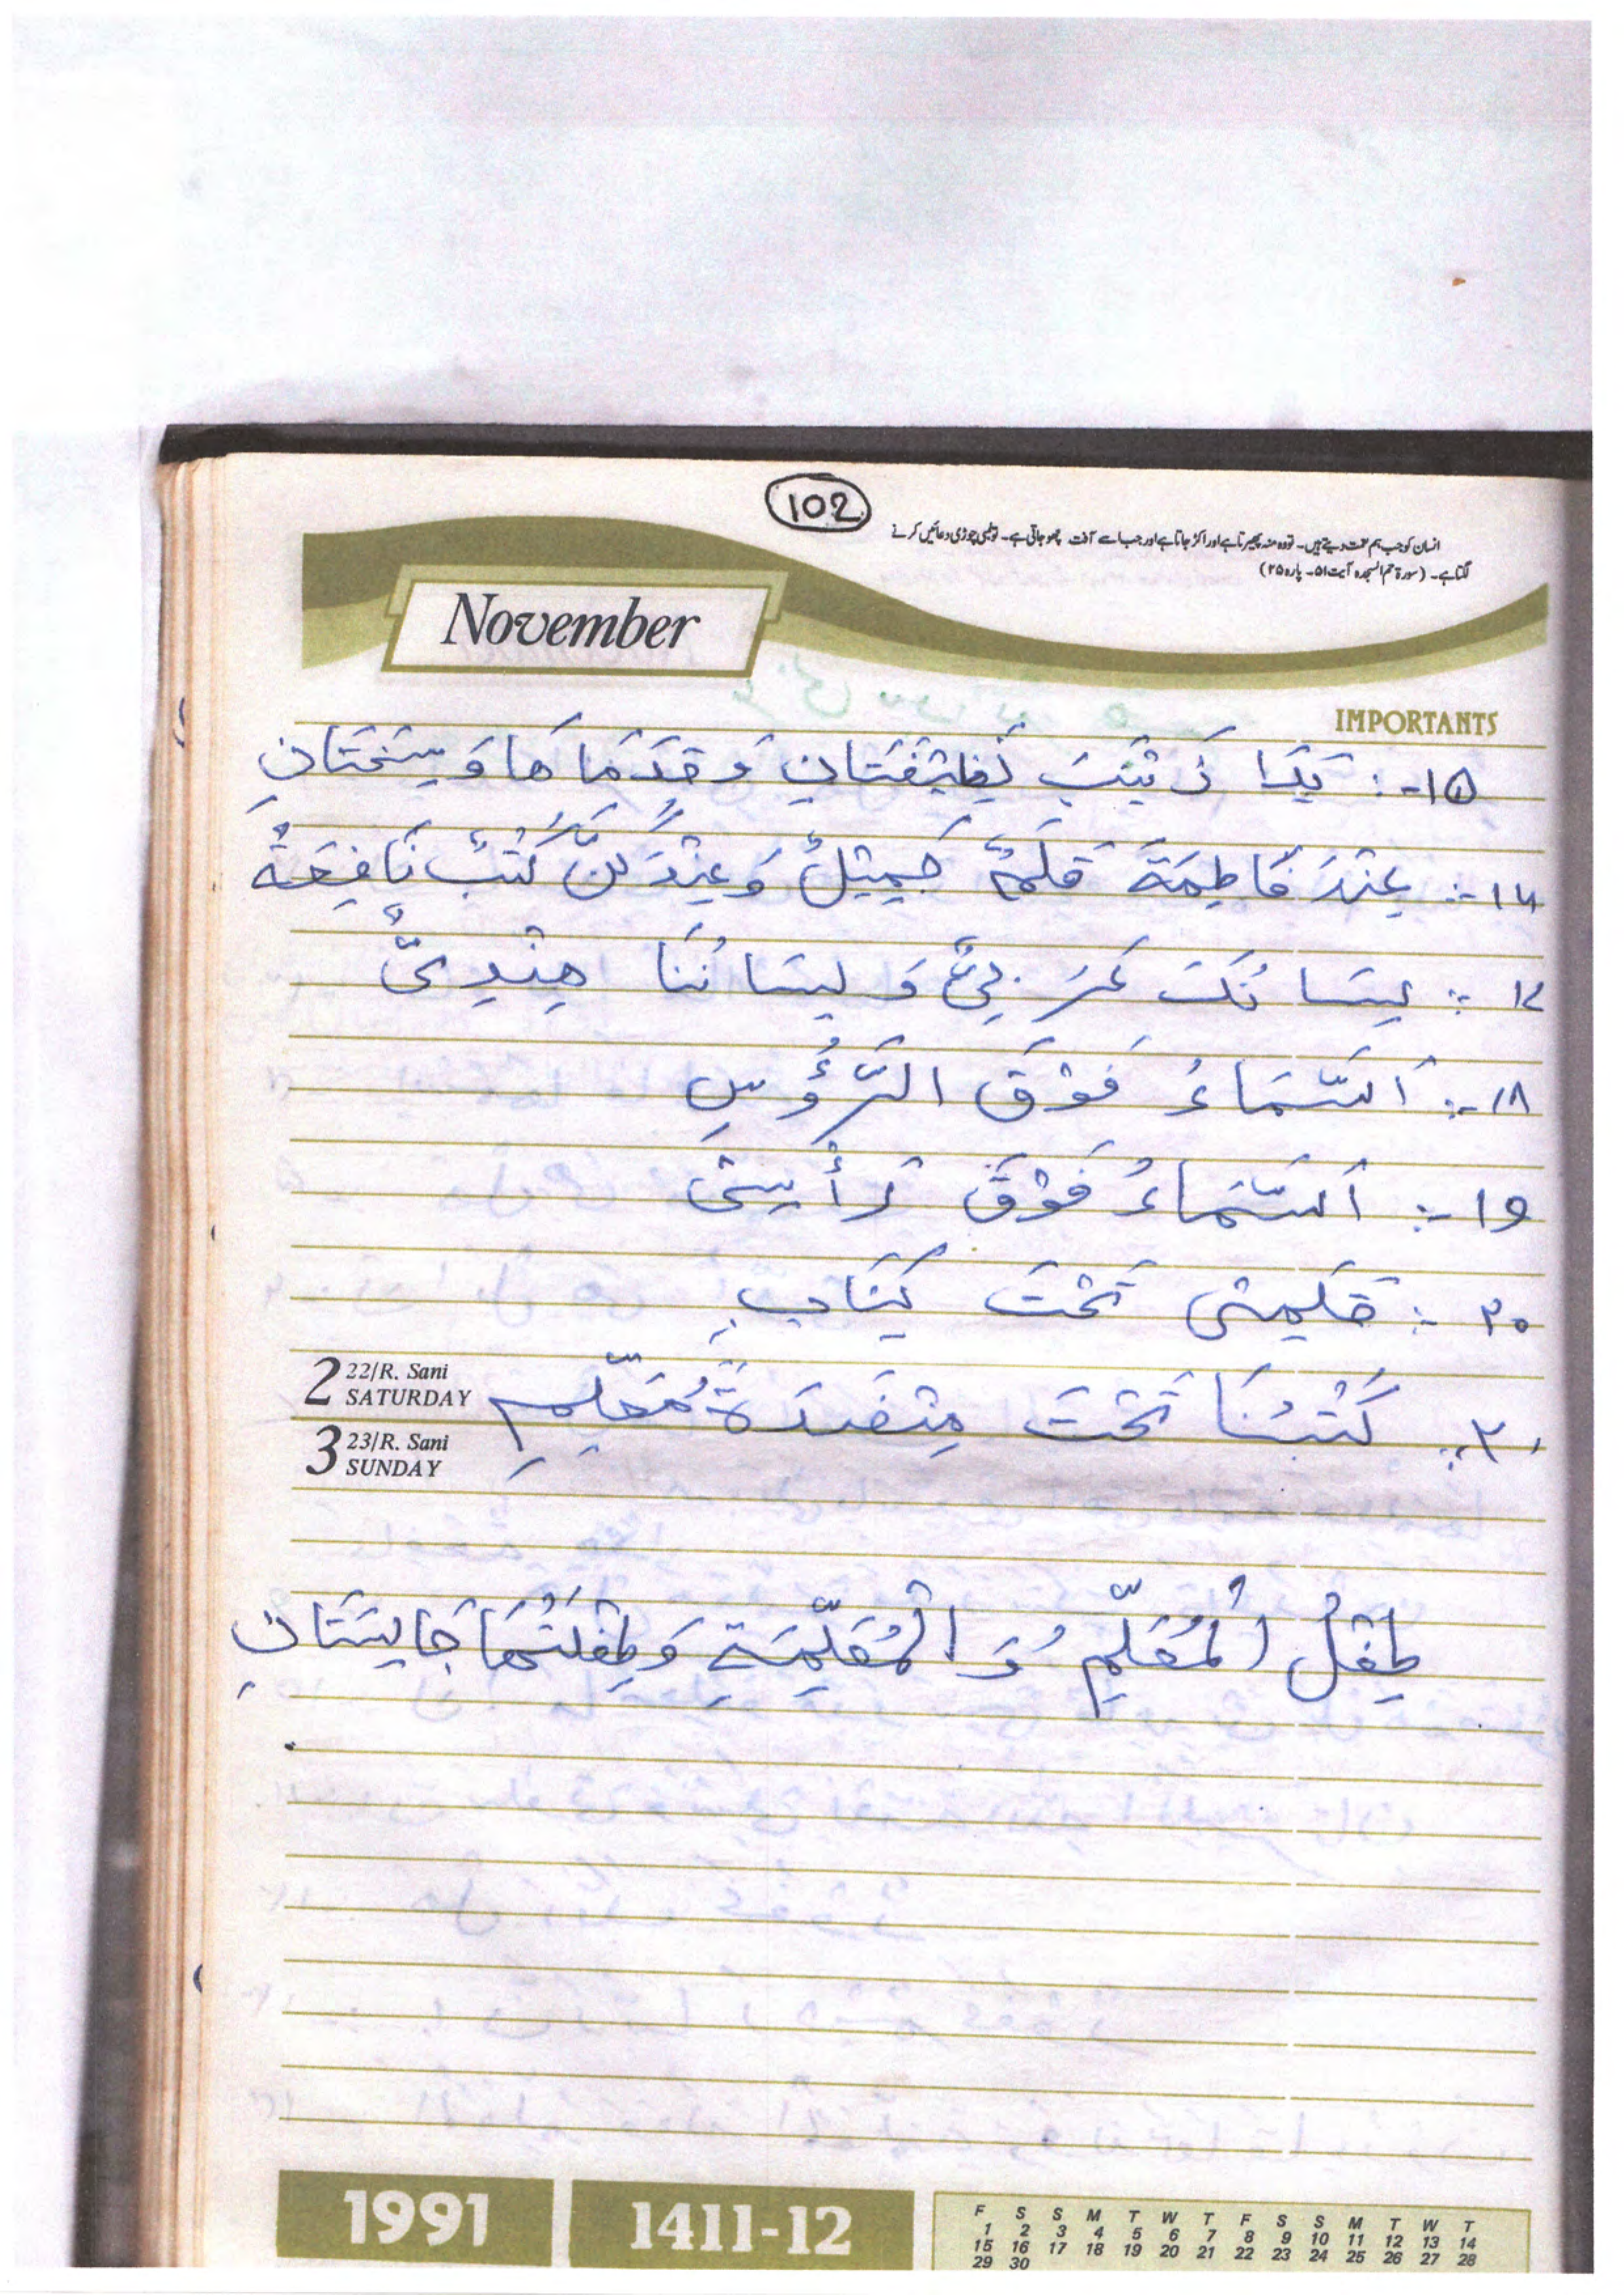 102
انسان کو جب ہم نعمت دیتے ہیں۔ تو وہ منہ پھیرتا ہے اور اکڑ جاتا ہے اور جب اسے آفت چھو جاتی ہے۔ تو لمبی چوڑی دعائیں کرنے
لگتا ہے۔ (سورۃ حم السجدہ آیت ۵۱۔ پارہ ۲۵)
November
IMPORTANTS
۱۵-: یَدَا زَیْنَبَ نَظِیْفَتَانِ وَ قَدَمَاهَا وَسِخَتَانِ
۱۶-: عِنْدَ فَاطِمَةَ قَلَمٌ جَمِیْلٌ وَ عِنْدَكُنَّ كُتُبٌ نَافِعَةٌ
۱۷ -: لِسَانُكَ عَرَبِیٌّ وَ لِسَانُنَا هِنْدِیٌّ
۱۸-: اَلسَّمَاءُ فَوْقَ الرُّؤُسِ
۱۹-: اَلسَّمَاءُ فَوْقَ رَأْسِیْ
۲۰ -: قَلَمِیْ تَحْتَ كِتَابِ
۲۱ -: كُتُبُنَا تَحْتَ مِنْضَدَةِ مُعَلِّمِ
2 22/R. Sani SATURDAY
3 23/R. Sani SUNDAY
طِفْلُ الْمُعَلِّمِ وَ الْمُعَلِّمَةِ وَ طِفْلَتُهَا جَالِسَتَانِ
1991 1411-12
F S S M T W T F S S M T W T
1 2 3 4 5 6 7 8 9 10 11 12 13 14
15 16 17 18 19 20 21 22 23 24 25 26 27 28
29 30